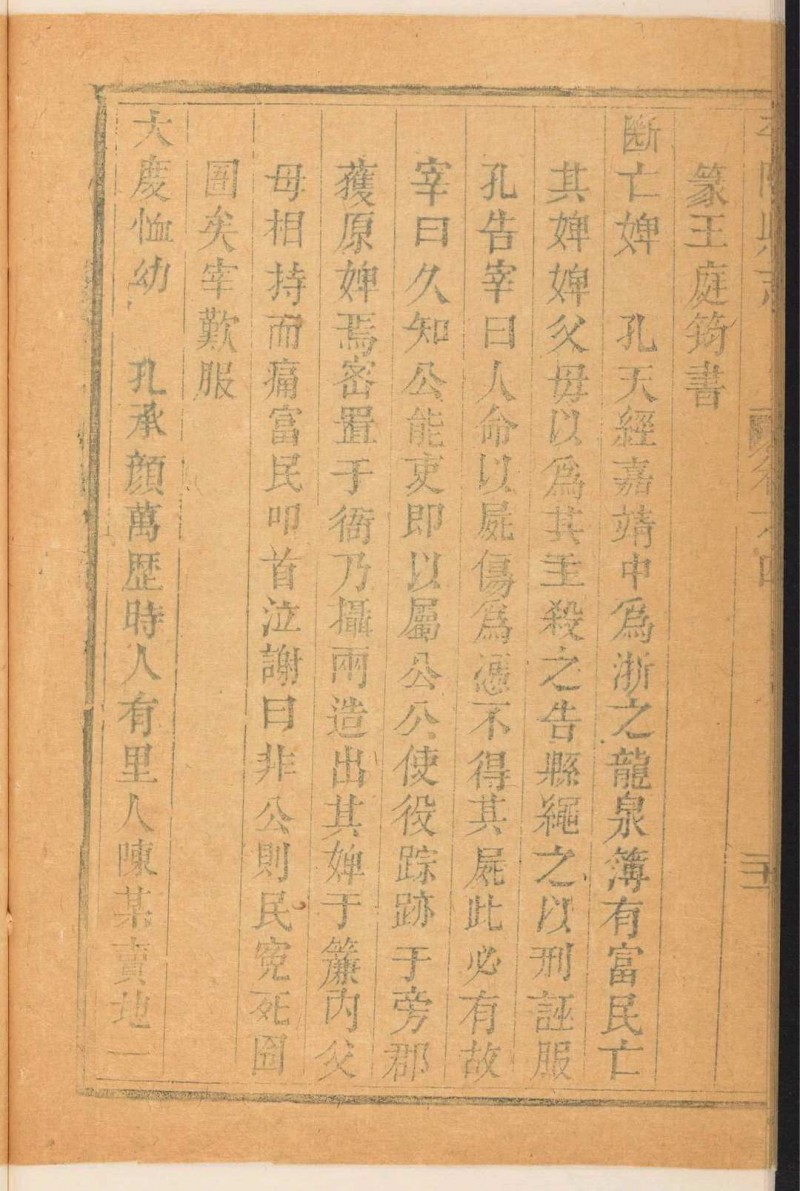 篆王庭筠書
斷亡婢 孔天經嘉靖中爲浙之龍泉簿有富民亡
其婢婢父毋以爲其主殺之告縣繩之以刑誣服
孔告宰曰人命以屍傷爲憑不得其屍此必有故
宰曰久知公能吏即以屬公公使役踪跡于旁郡
獲原婢焉密置于衙乃攝兩造出其婢于簾內父
母相持而痛富民叩首泣謝曰非公則民寃死囹
圄矣宰歎服
大慶恤幼 孔承顔萬歷時人有里人陳某賣地一